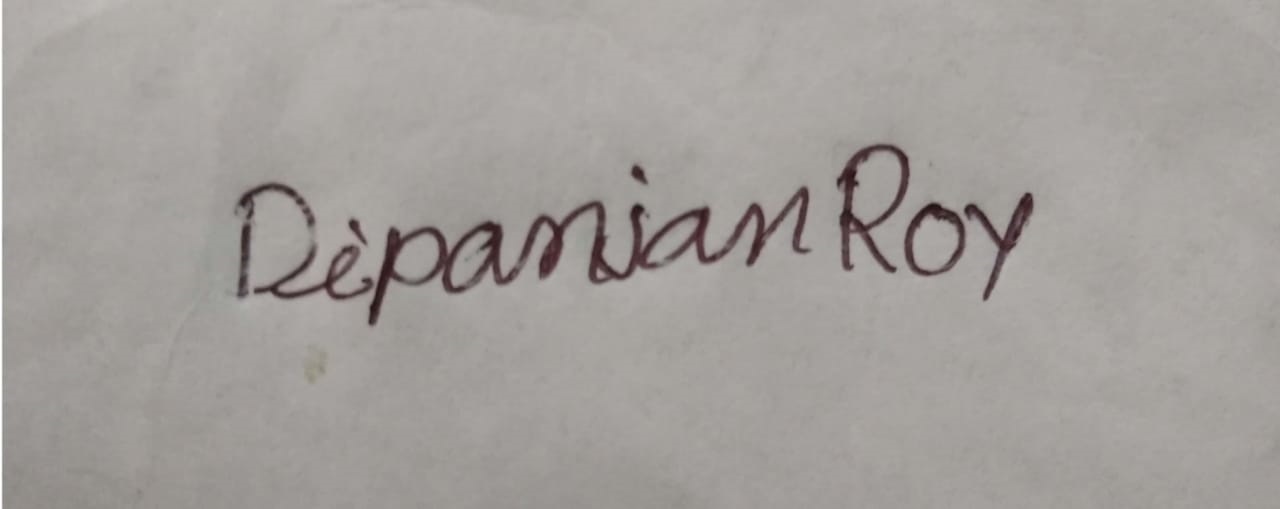 Dipanjan Roy